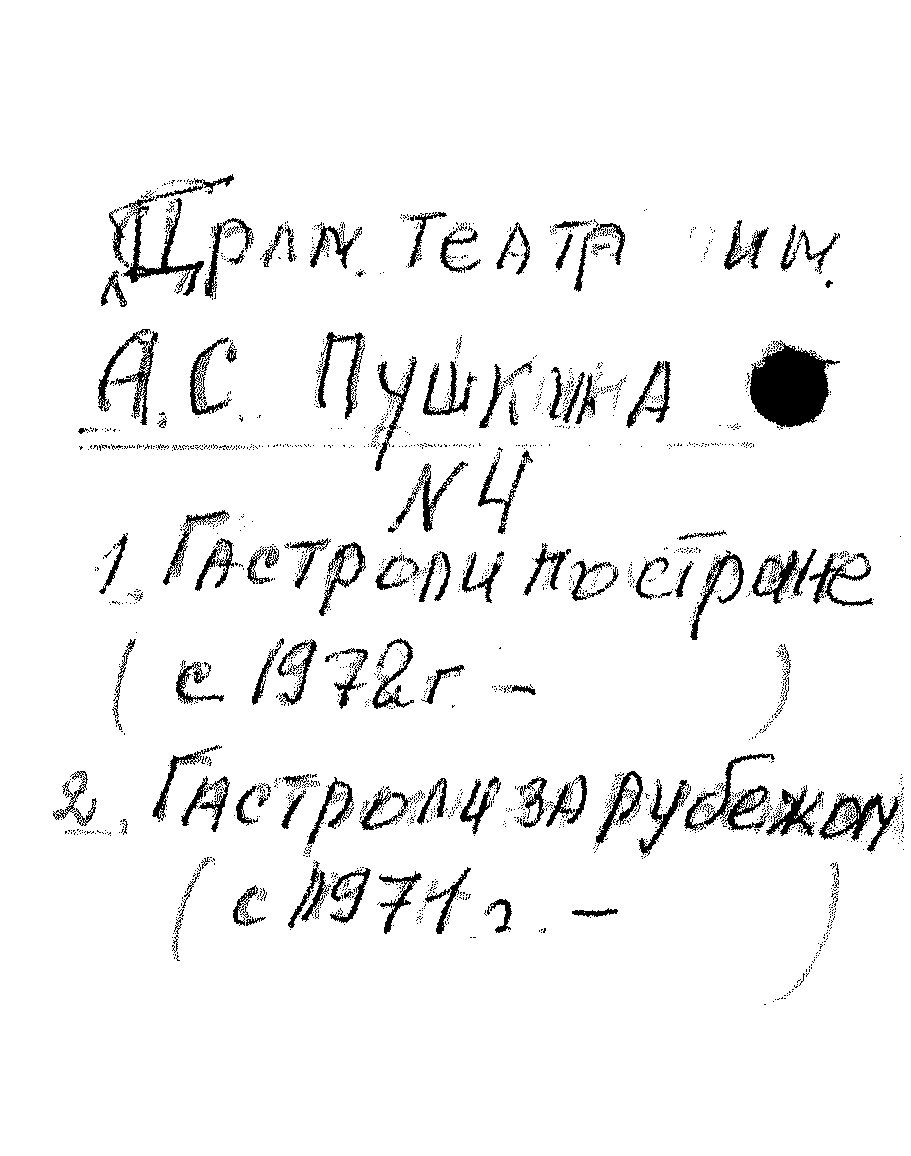 Драм. театр им.
А.С. Пушкина
N 4
1. Гастроли по стране
( с 1972 г. – )
2. Гастроли за рубежом
( с 1971 г. – )